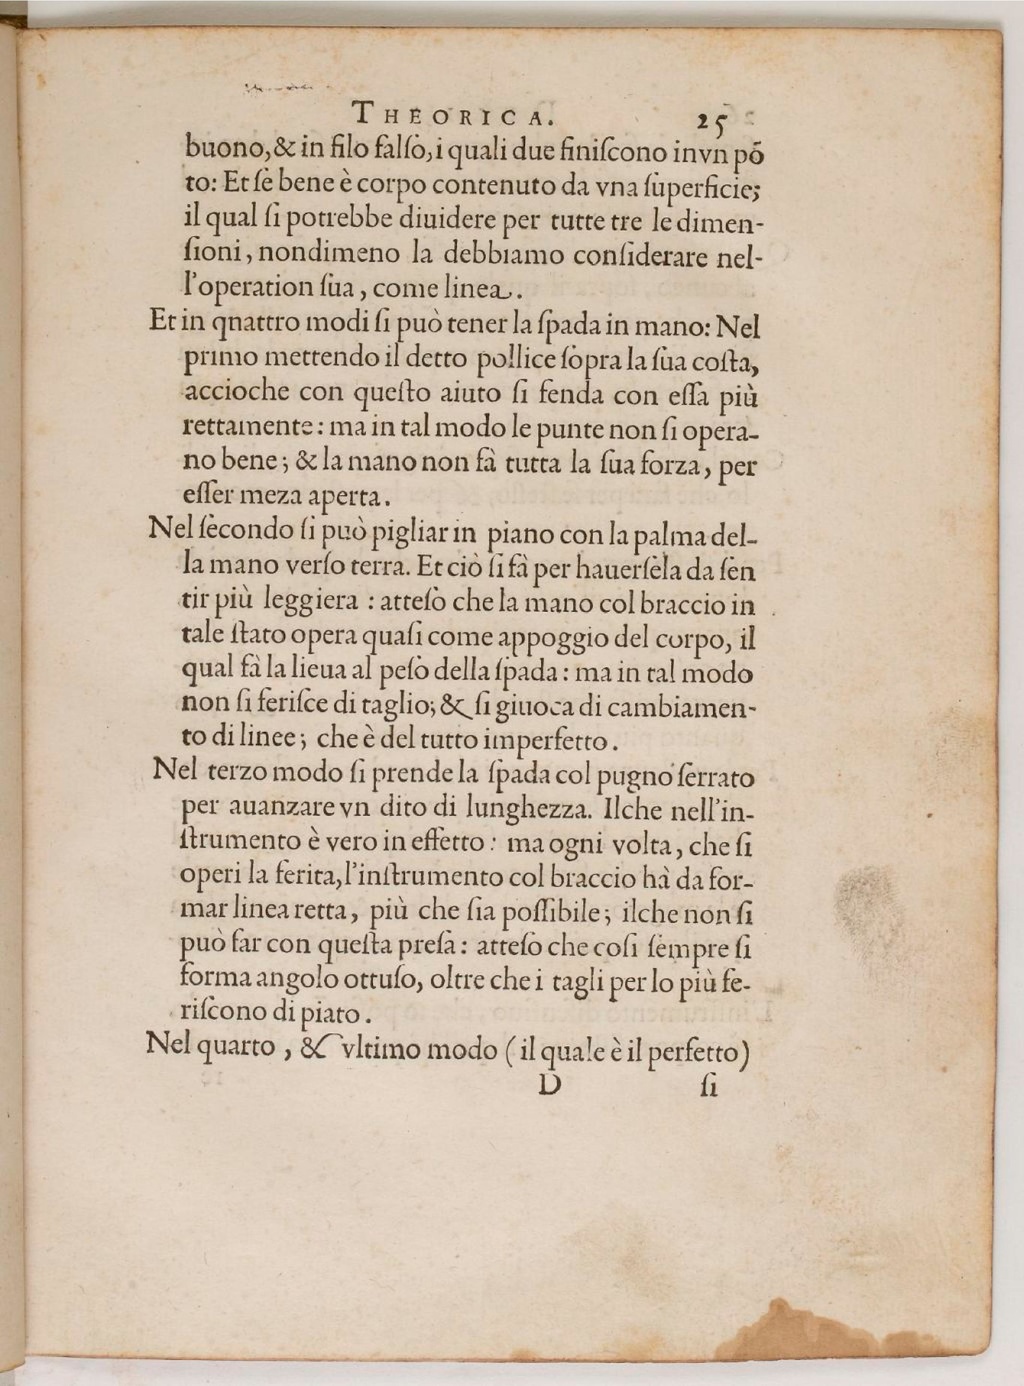 THEORICA. 25
buono, & in filo falſo, i quali due finiſcono in vn pō
to: Et ſe bene è corpo contenuto da vna ſuperficie;
il qual ſi potrebbe diuidere per tutte tre le dimen-
ſioni, nondimeno la debbiamo conſiderare nel-
l'operation ſua, come linea.
Et in qnattro modi ſi può tener la ſpada in mano: Nel
primo mettendo il detto pollice ſopra la ſua coſta,
accioche con queſto aiuto ſi fenda con eſſa più
rettamente: ma in tal modo le punte non ſi opera-
no bene; & la mano non fà tutta la ſua forza, per
eſſer meza aperta.
Nel ſecondo ſi può pigliar in piano con la palma del-
la mano verſo terra. Et ciò ſi fà per hauerſela da ſen
tir più leggiera: atteſo che la mano col braccio in
tale ſtato opera quaſi come appoggio del corpo, il
qual fà la lieua al peſo della ſpada: ma in tal modo
non ſi feriſce di taglio; & ſi giuoca di cambiamen-
to di linee; che è del tutto imperfetto.
Nel terzo modo ſi prende la ſpada col pugno ſerrato
per auanzare vn dito di lunghezza. Ilche nell'in-
ſtrumento è vero in effetto: ma ogni volta, che ſi
operi la ferita, l'inſtrumento col braccio hà da for-
mar linea retta, più che ſia poſſibile; ilche non ſi
può far con queſta preſa: atteſo che coſi ſempre ſi
forma angolo ottuſo, oltre che i tagli per lo più fe-
riſcono di piato.
Nel quarto, & vltimo modo (il quale è il perfetto)
D ſi